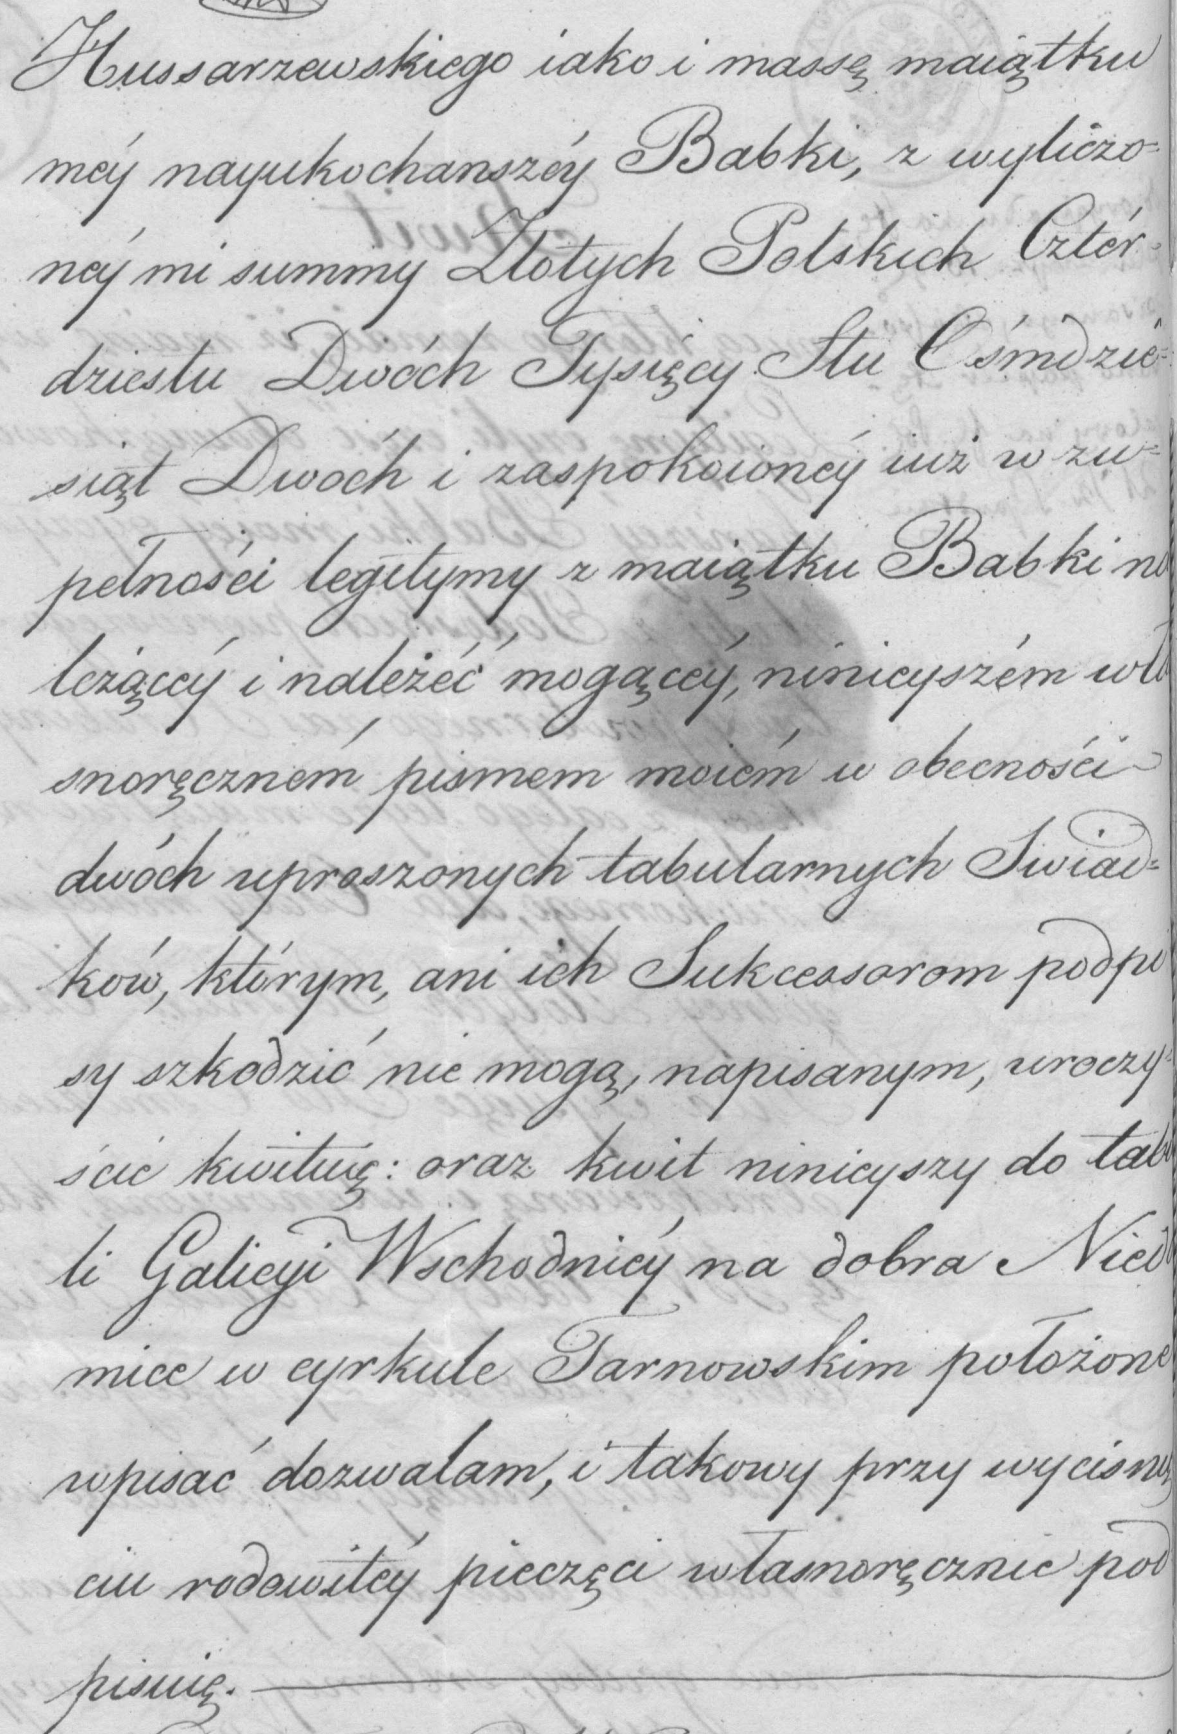 Hussarzewskiego iako i massę maiątku
mey nayukochanszéy Babki, z wyliczo=
néy mi summy Złotych Polskich Cztér=
dziestu Dwóch Tysięcy Stu Ośmdzie=
siąt Dwóch i zaspokoionéy iuż w zu=
pełności legitymy z maiątku Babki na
leżącéy i należéć mogącéy, ninieyszém wła
snoręczném pismem moiém w obecności
dwóch uproszonych tabularnych Swiad=
ków, którym, ani ich Sukcessorom podpi
sy szkodzić nie mogą, napisanym, uroczy=
ście kwituię: oraz kwit ninieyszy do tabu
li Galicyi Wschodniéy na dobra Nied
mice w cyrkule Tarnowskim położone
wpisać dozwalam, i takowy przy wycisnię
ciu rodowitéy pieczęci własnoręcznie pod
pisuię.